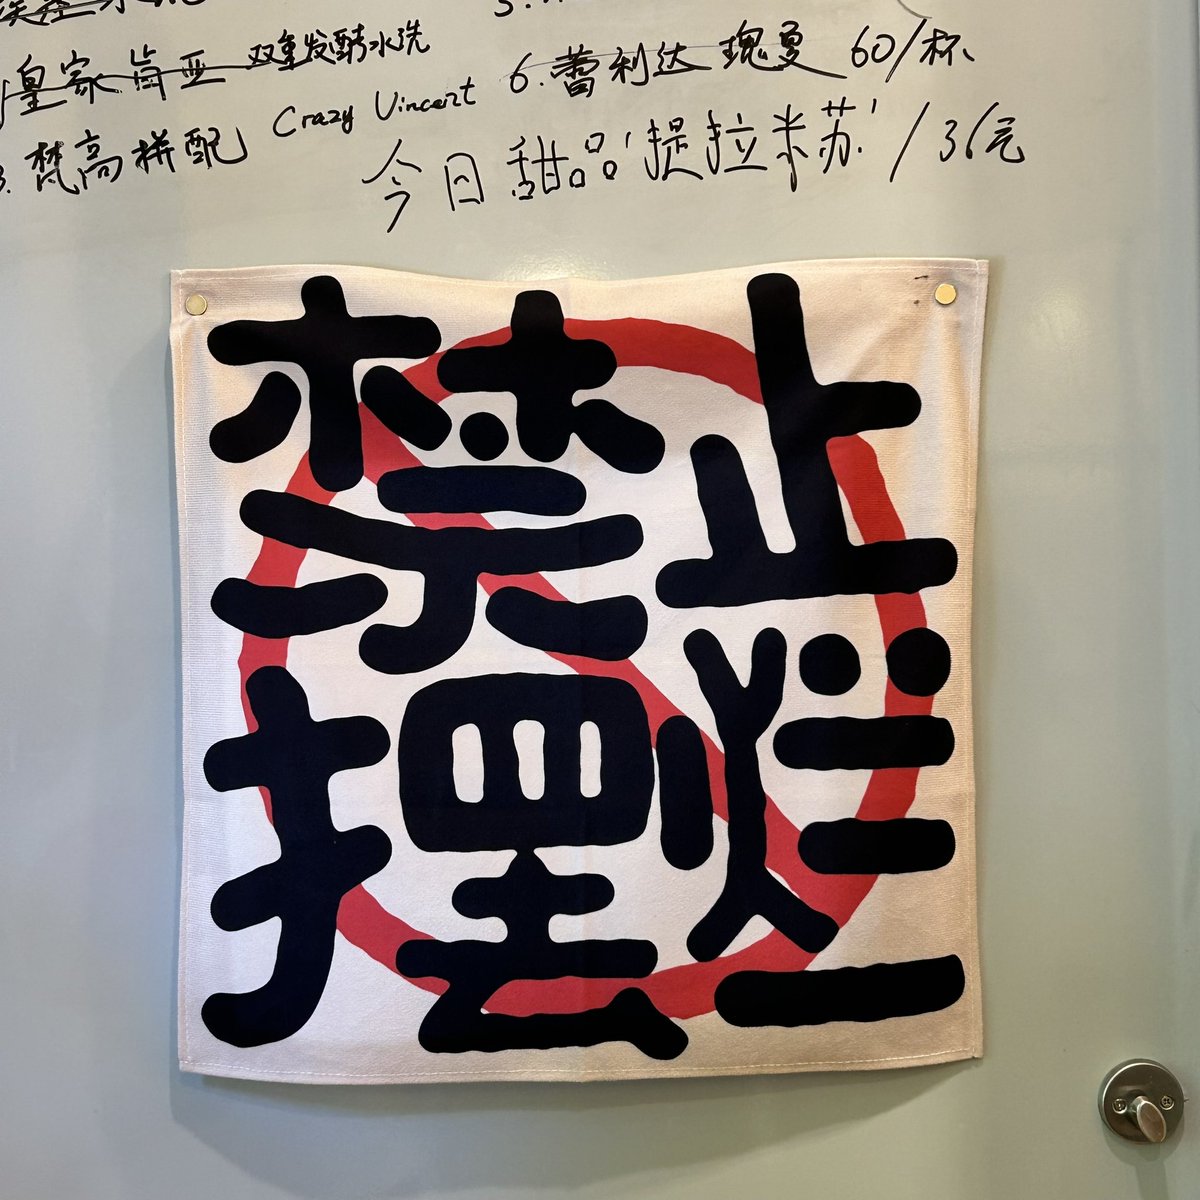 皇家肯亚 双重发酵水洗
3. 梵高拼配 Crazy Vincent
6. 蕾利达 瑰夏 60/杯
今日甜品'提拉米苏'/36元
禁止
摆烂